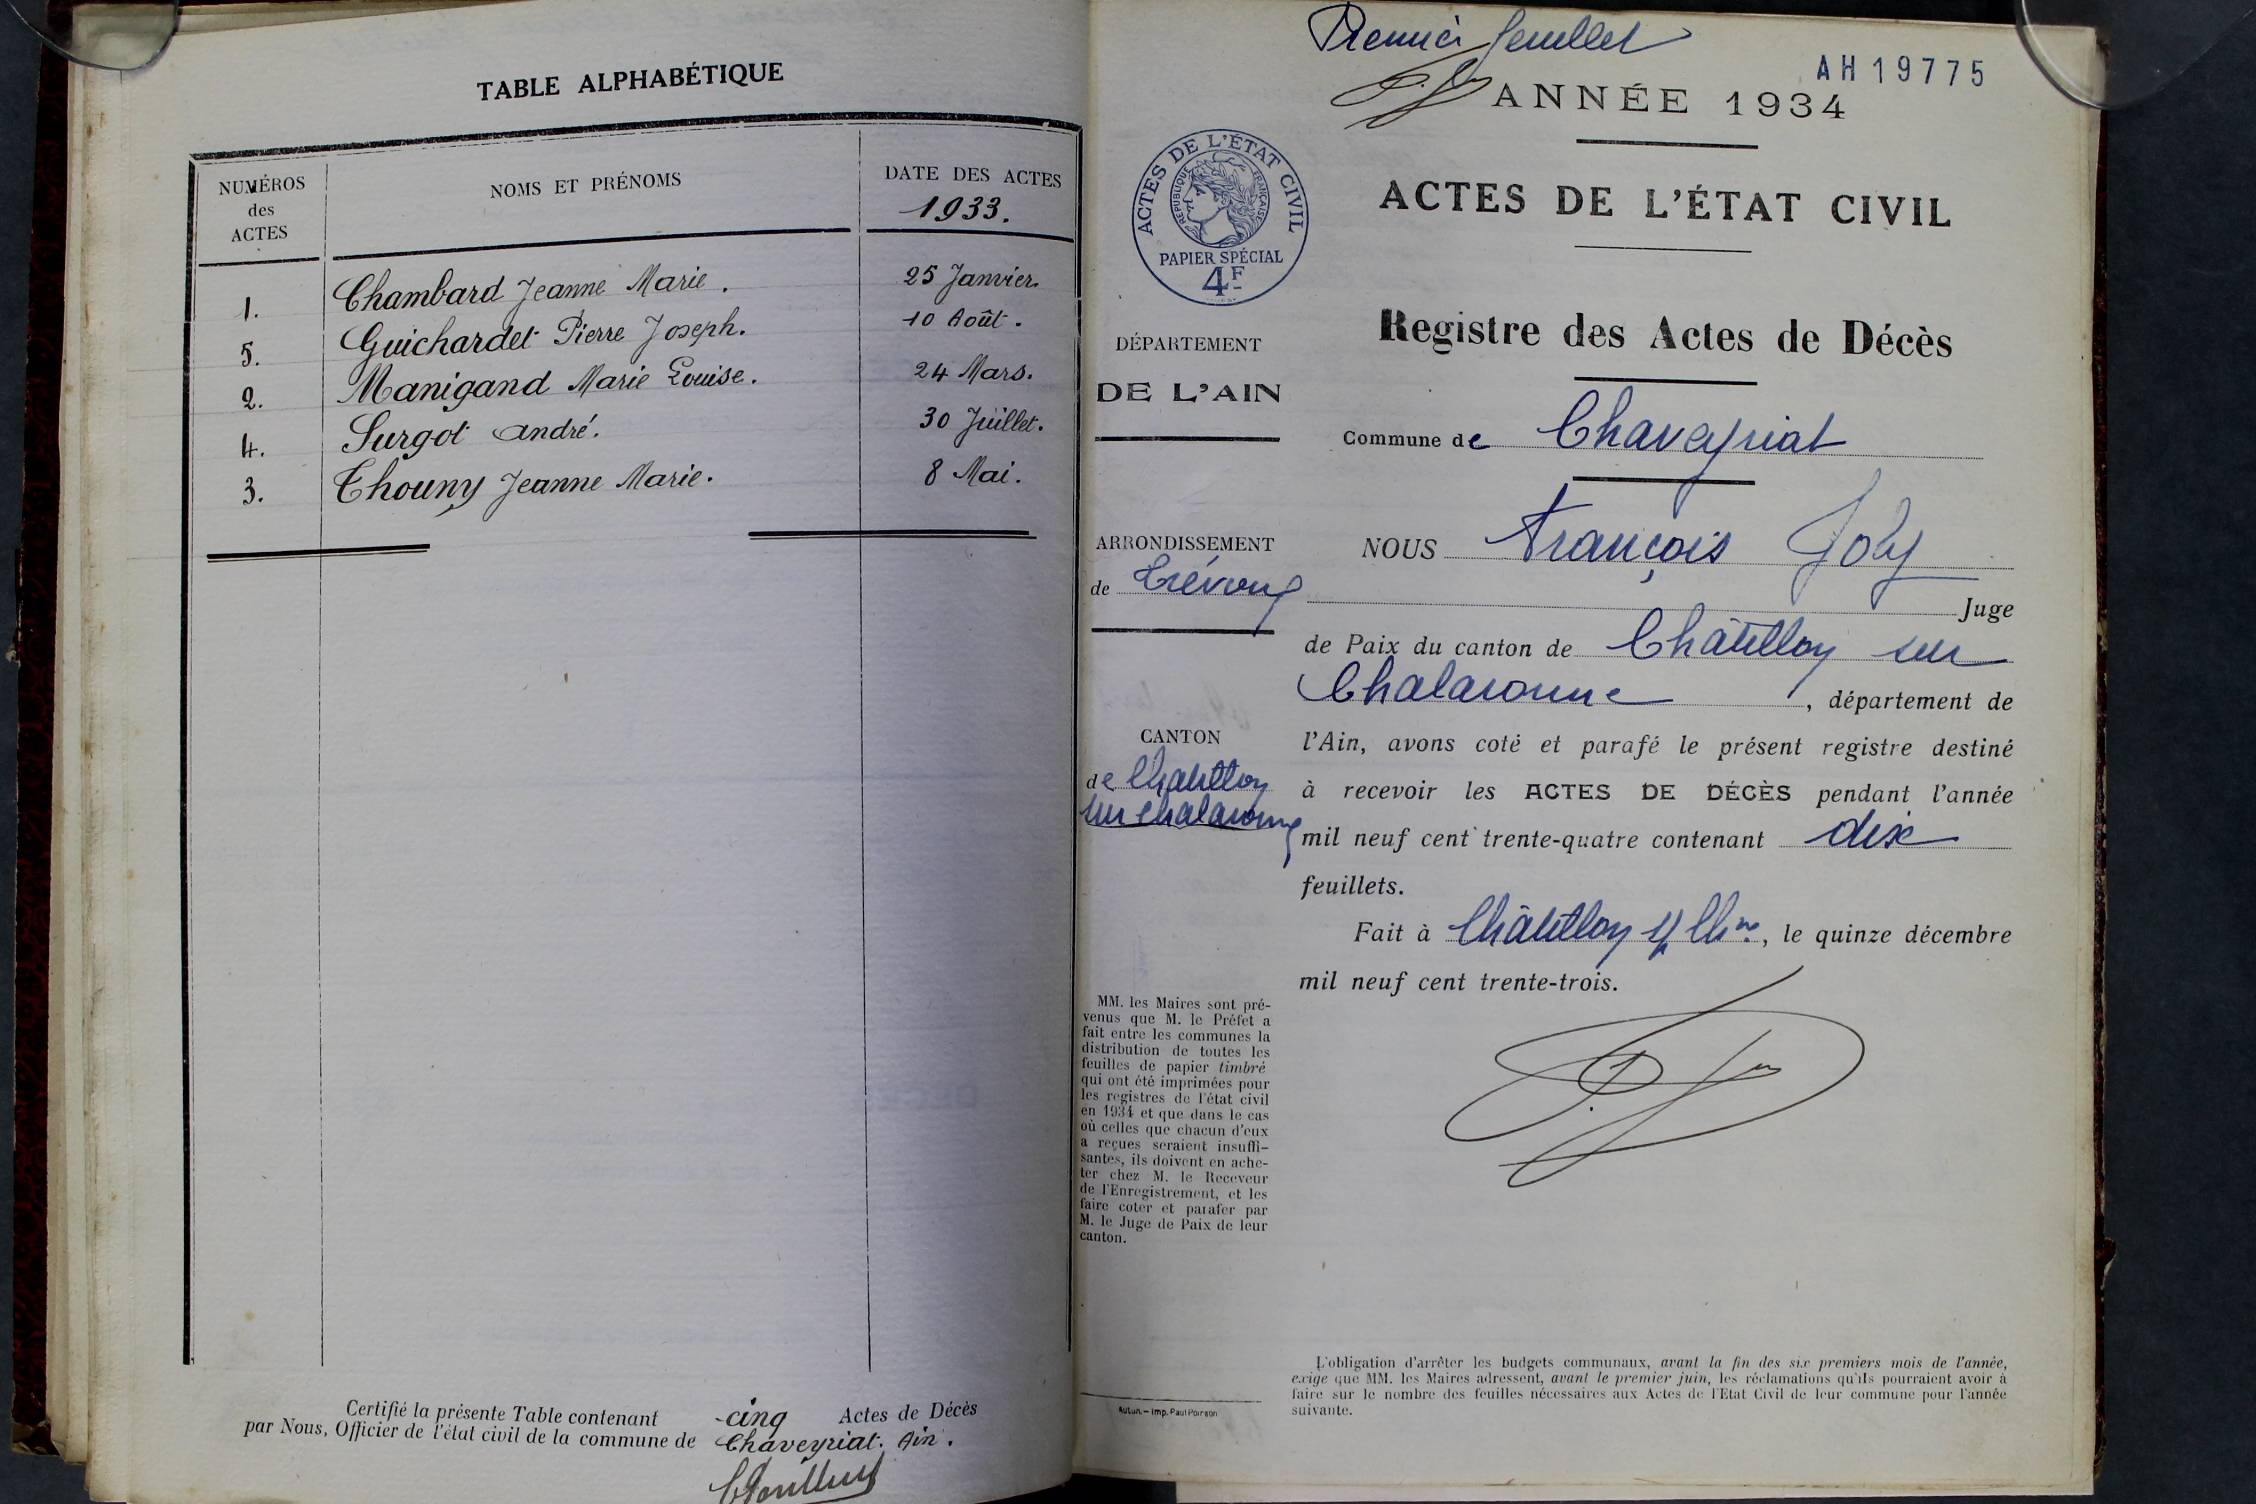 TABLE ALPHABÉTIQUE
NUMÉROS
des
ACTES
NOMS ET PRÉNOMS
DATE DES ACTES
1933.
1. Chambard Jeanne Marie. 25 Janvier.
5. Guichardet Pierre Joseph. 10 Août.
2. Manigand Marie Louise. 24 Mars.
4. Surgot André. 30 Juillet.
3. Thouny Jeanne Marie. 8 Mai.
Certifié la présente Table contenant cinq Actes de Décès
par Nous, Officier de l'état civil de la commune de Chaveyriat. Ain.
Premier feuillet
AH19775
ANNÉE 1934
ACTES DE L'ÉTAT CIVIL
RÉPUBLIQUE FRANÇAISE
PAPIER SPÉCIAL
4F
ACTES DE L'ÉTAT CIVIL
Registre des Actes de Décès
DÉPARTEMENT
DE L'AIN
Commune de Chaveyriat
ARRONDISSEMENT
de Trévoux
CANTON
de Châtillon
sur Chalaronne
NOUS François Joly
Juge
de Paix du canton de Châtillon sur
Chalaronne, département de
l'Ain, avons coté et parafé le présent registre destiné
à recevoir les ACTES DE DÉCÈS pendant l'année
mil neuf cent trente-quatre contenant dix
feuillets.
Fait à Châtillon s/ Chne, le quinze décembre
mil neuf cent trente-trois.
MM. les Maires sont pré-
venus que M. le Préfet a
fait entre les communes la
distribution de toutes les
feuilles de papier timbré
qui ont été imprimées pour
les registres de l'état civil
en 1934 et que dans le cas
où celles que chacun d'eux
a reçues seraient insuffi-
santes, ils doivent en ache-
ter chez M. le Receveur
de l'Enregistrement, et les
faire coter et parafer par
M. le Juge de Paix de leur
canton.
Autun. — Imp. Paul Poirson
L'obligation d'arrêter les budgets communaux, avant la fin des six premiers mois de l'année,
exige que MM. les Maires adressent, avant le premier juin, les réclamations qu'ils pourraient avoir à
faire sur le nombre des feuilles nécessaires aux Actes de l'Etat Civil de leur commune pour l'année
suivante.